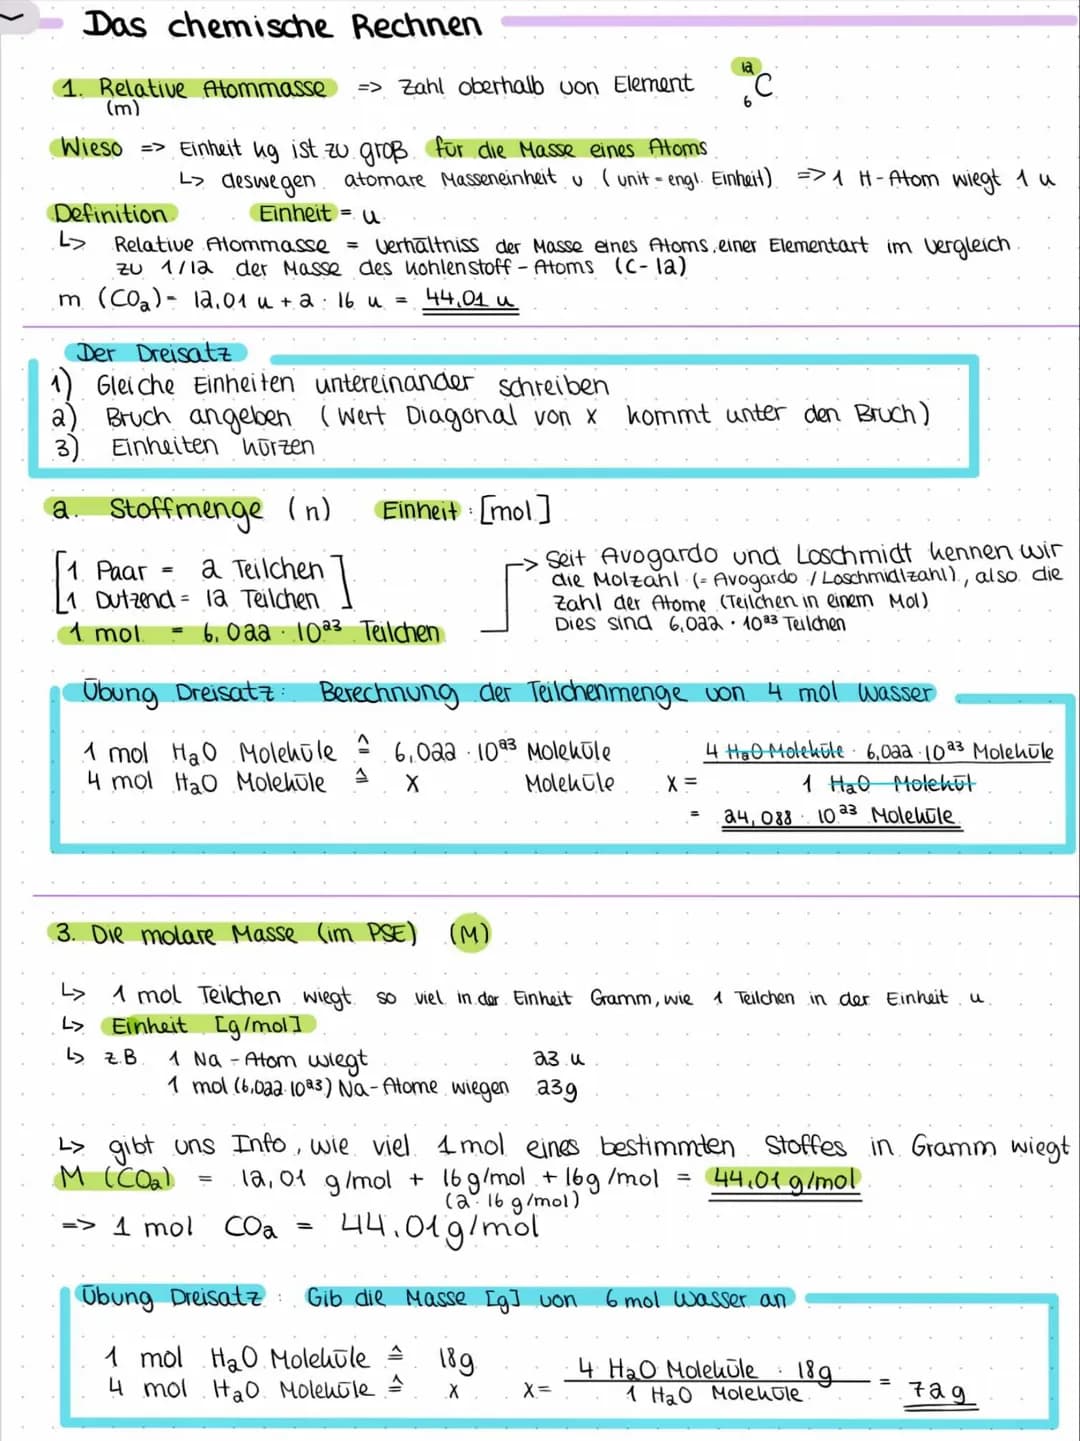 Das chemische Rechnen
1. Relative Atommasse => Zahl oberhalb von Element ¹²₆C
(m)
Wieso => Einheit kg ist zu groß für die Masse eines Atoms
↳ deswegen atomare Masseneinheit u (unit = engl. Einheit) => 1 H-Atom wiegt 1 u
Definition Einheit = u
↳ Relative Atommasse = Verhältniss der Masse eines Atoms einer Elementart im Vergleich
zu 1/12 der Masse des Kohlenstoff-Atoms (C-12)
m (CO₂) = 12,01 u + 2 · 16 u = 44,01 u
Der Dreisatz
1) Gleiche Einheiten untereinander schreiben
2) Bruch angeben (Wert Diagonal von x kommt unter den Bruch)
3) Einheiten kürzen
2. Stoffmenge (n) Einheit: [mol]
[1 Paar = 2 Teilchen
1 Dutzend = 12 Teilchen]
1 mol = 6,022 · 10²³ Teilchen
-> Seit Avogardo und Loschmidt kennen wir
die Molzahl (= Avogardo / Loschmidtzahl), also die
Zahl der Atome (Teilchen in einem Mol)
Dies sind 6,022 · 10²³ Teilchen
Übung Dreisatz: Berechnung der Teilchenmenge von 4 mol Wasser
1 mol H₂O Moleküle ≙ 6,022 · 10²³ Moleküle
4 mol H₂O Moleküle ≙ x Moleküle
4 H₂O Moleküle · 6,022 · 10²³ Moleküle
x =
1 H₂O Molekül
= 24,088 · 10²³ Moleküle
3. Die molare Masse (im PSE) (M)
↳ 1 mol Teilchen wiegt so viel in der Einheit Gramm, wie 1 Teilchen in der Einheit u.
↳ Einheit [g/mol]
↳ z.B. 1 Na-Atom wiegt 23 u
1 mol (6,022·10²³) Na-Atome wiegen 23g
↳ gibt uns Info, wie viel 1 mol eines bestimmten Stoffes in Gramm wiegt
M (CO₂) = 12,01 g/mol + 16 g/mol + 16g/mol = 44,01 g/mol
(2 · 16 g/mol)
=> 1 mol CO₂ = 44.01g/mol
Übung Dreisatz: Gib die Masse [g] von 6 mol Wasser an
1 mol H₂O Moleküle ≙ 18g
4 mol H₂O Moleküle ≙ x
4 H₂O Moleküle · 18g
x = = 72g
1 H₂O Moleküle